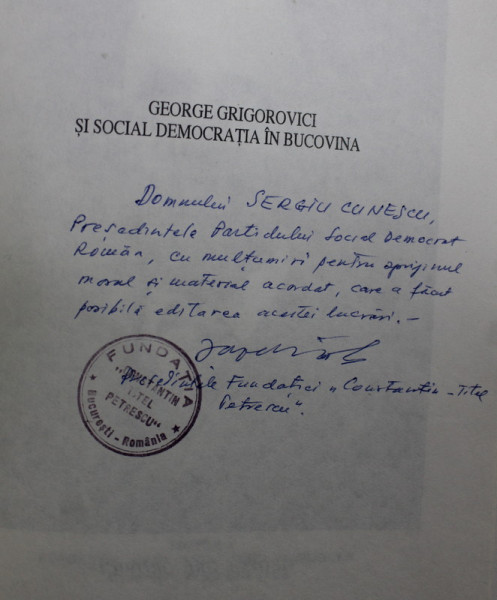 GEORGE GRIGOROVICI
ȘI SOCIAL DEMOCRAȚIA ÎN BUCOVINA
Domnului SERGIU CUNESCU,
Președintele Partidului Social Democrat
Român, cu mulțumiri pentru sprijinul
moral și material acordat, care a făcut
posibilă editarea acestei lucrări. —
președintele Fundației „Constantin - Titel
Petrescu".
FUNDAȚIA
"CONSTANTIN
TITEL
PETRESCU"
București - România